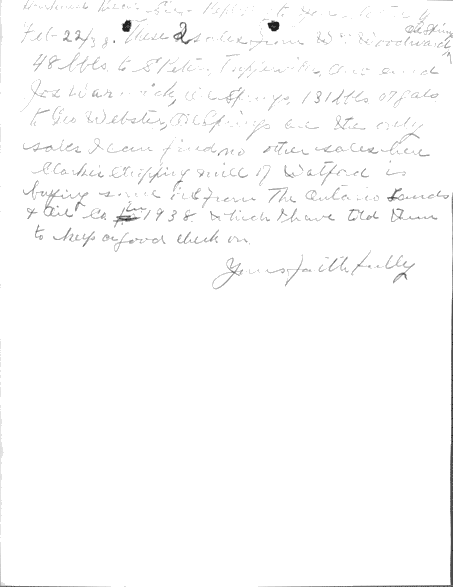 Dear Sir - Reply to
Feb-22/38. These 2 sales from W Woodward Oil Springs
48 bbls, to St Peter, and
Joe Warwick, Oil Springs, 131 bbls gals
to Geo Webster, Oil Springs are the only
sales I can find no other sales here
stripping mill of Watford is
buying some oil from The Ontario Lands
& Oil Co in 1938. which I have told them
to keep a good check on.
Yours faithfully